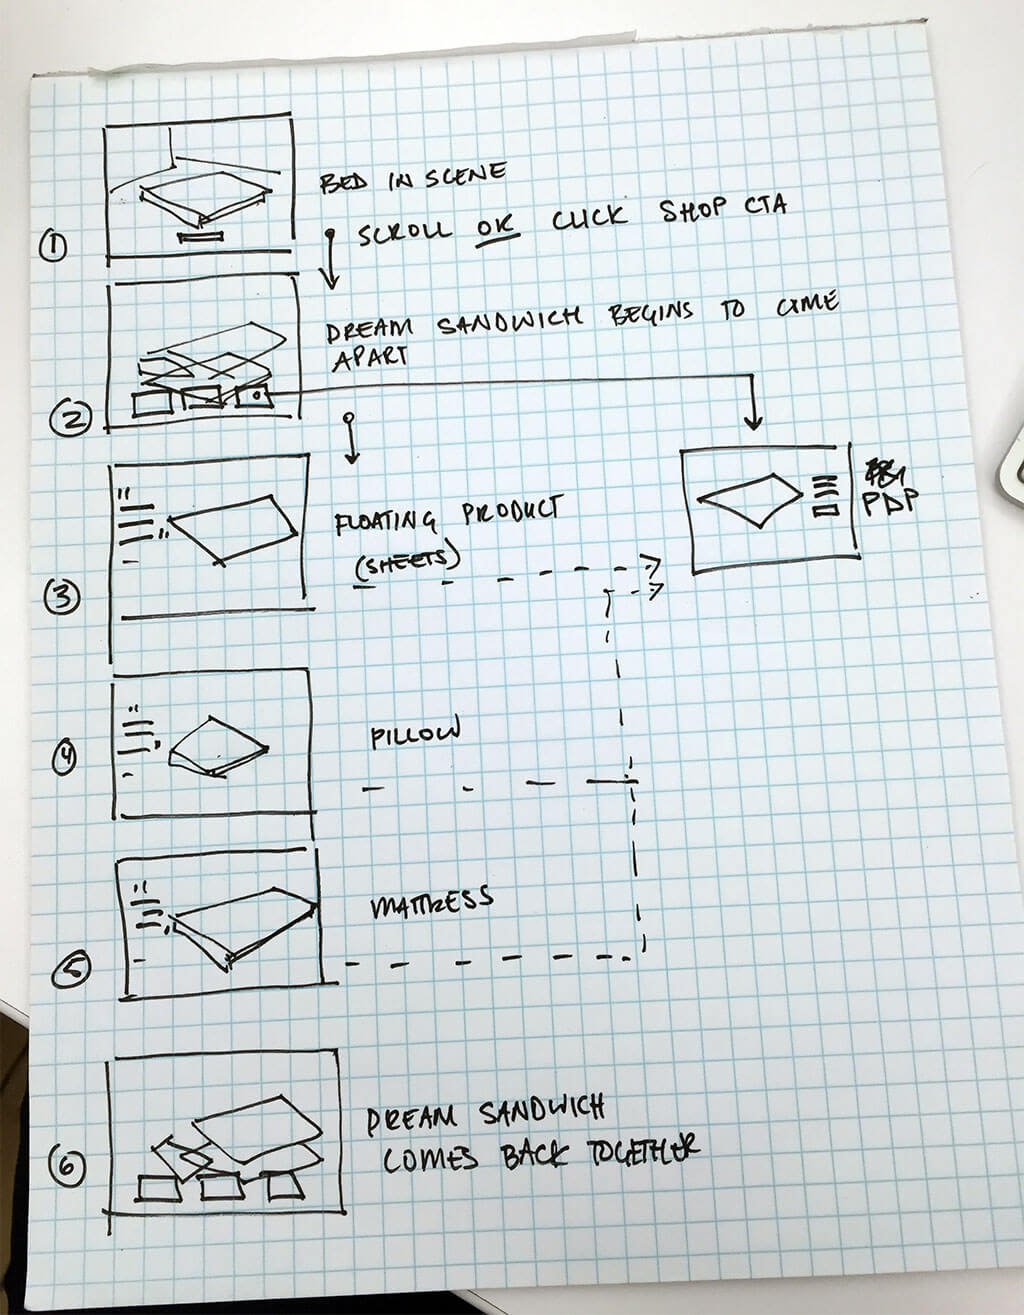 ①
BED IN SCENE
SCROLL OR CLICK SHOP CTA
②
DREAM SANDWICH BEGINS TO COME
APART
③
FLOATING PRODUCT
(SHEETS)
PDP
④
PILLOW
⑤
MATTRESS
⑥
DREAM SANDWICH
COMES BACK TOGETHER